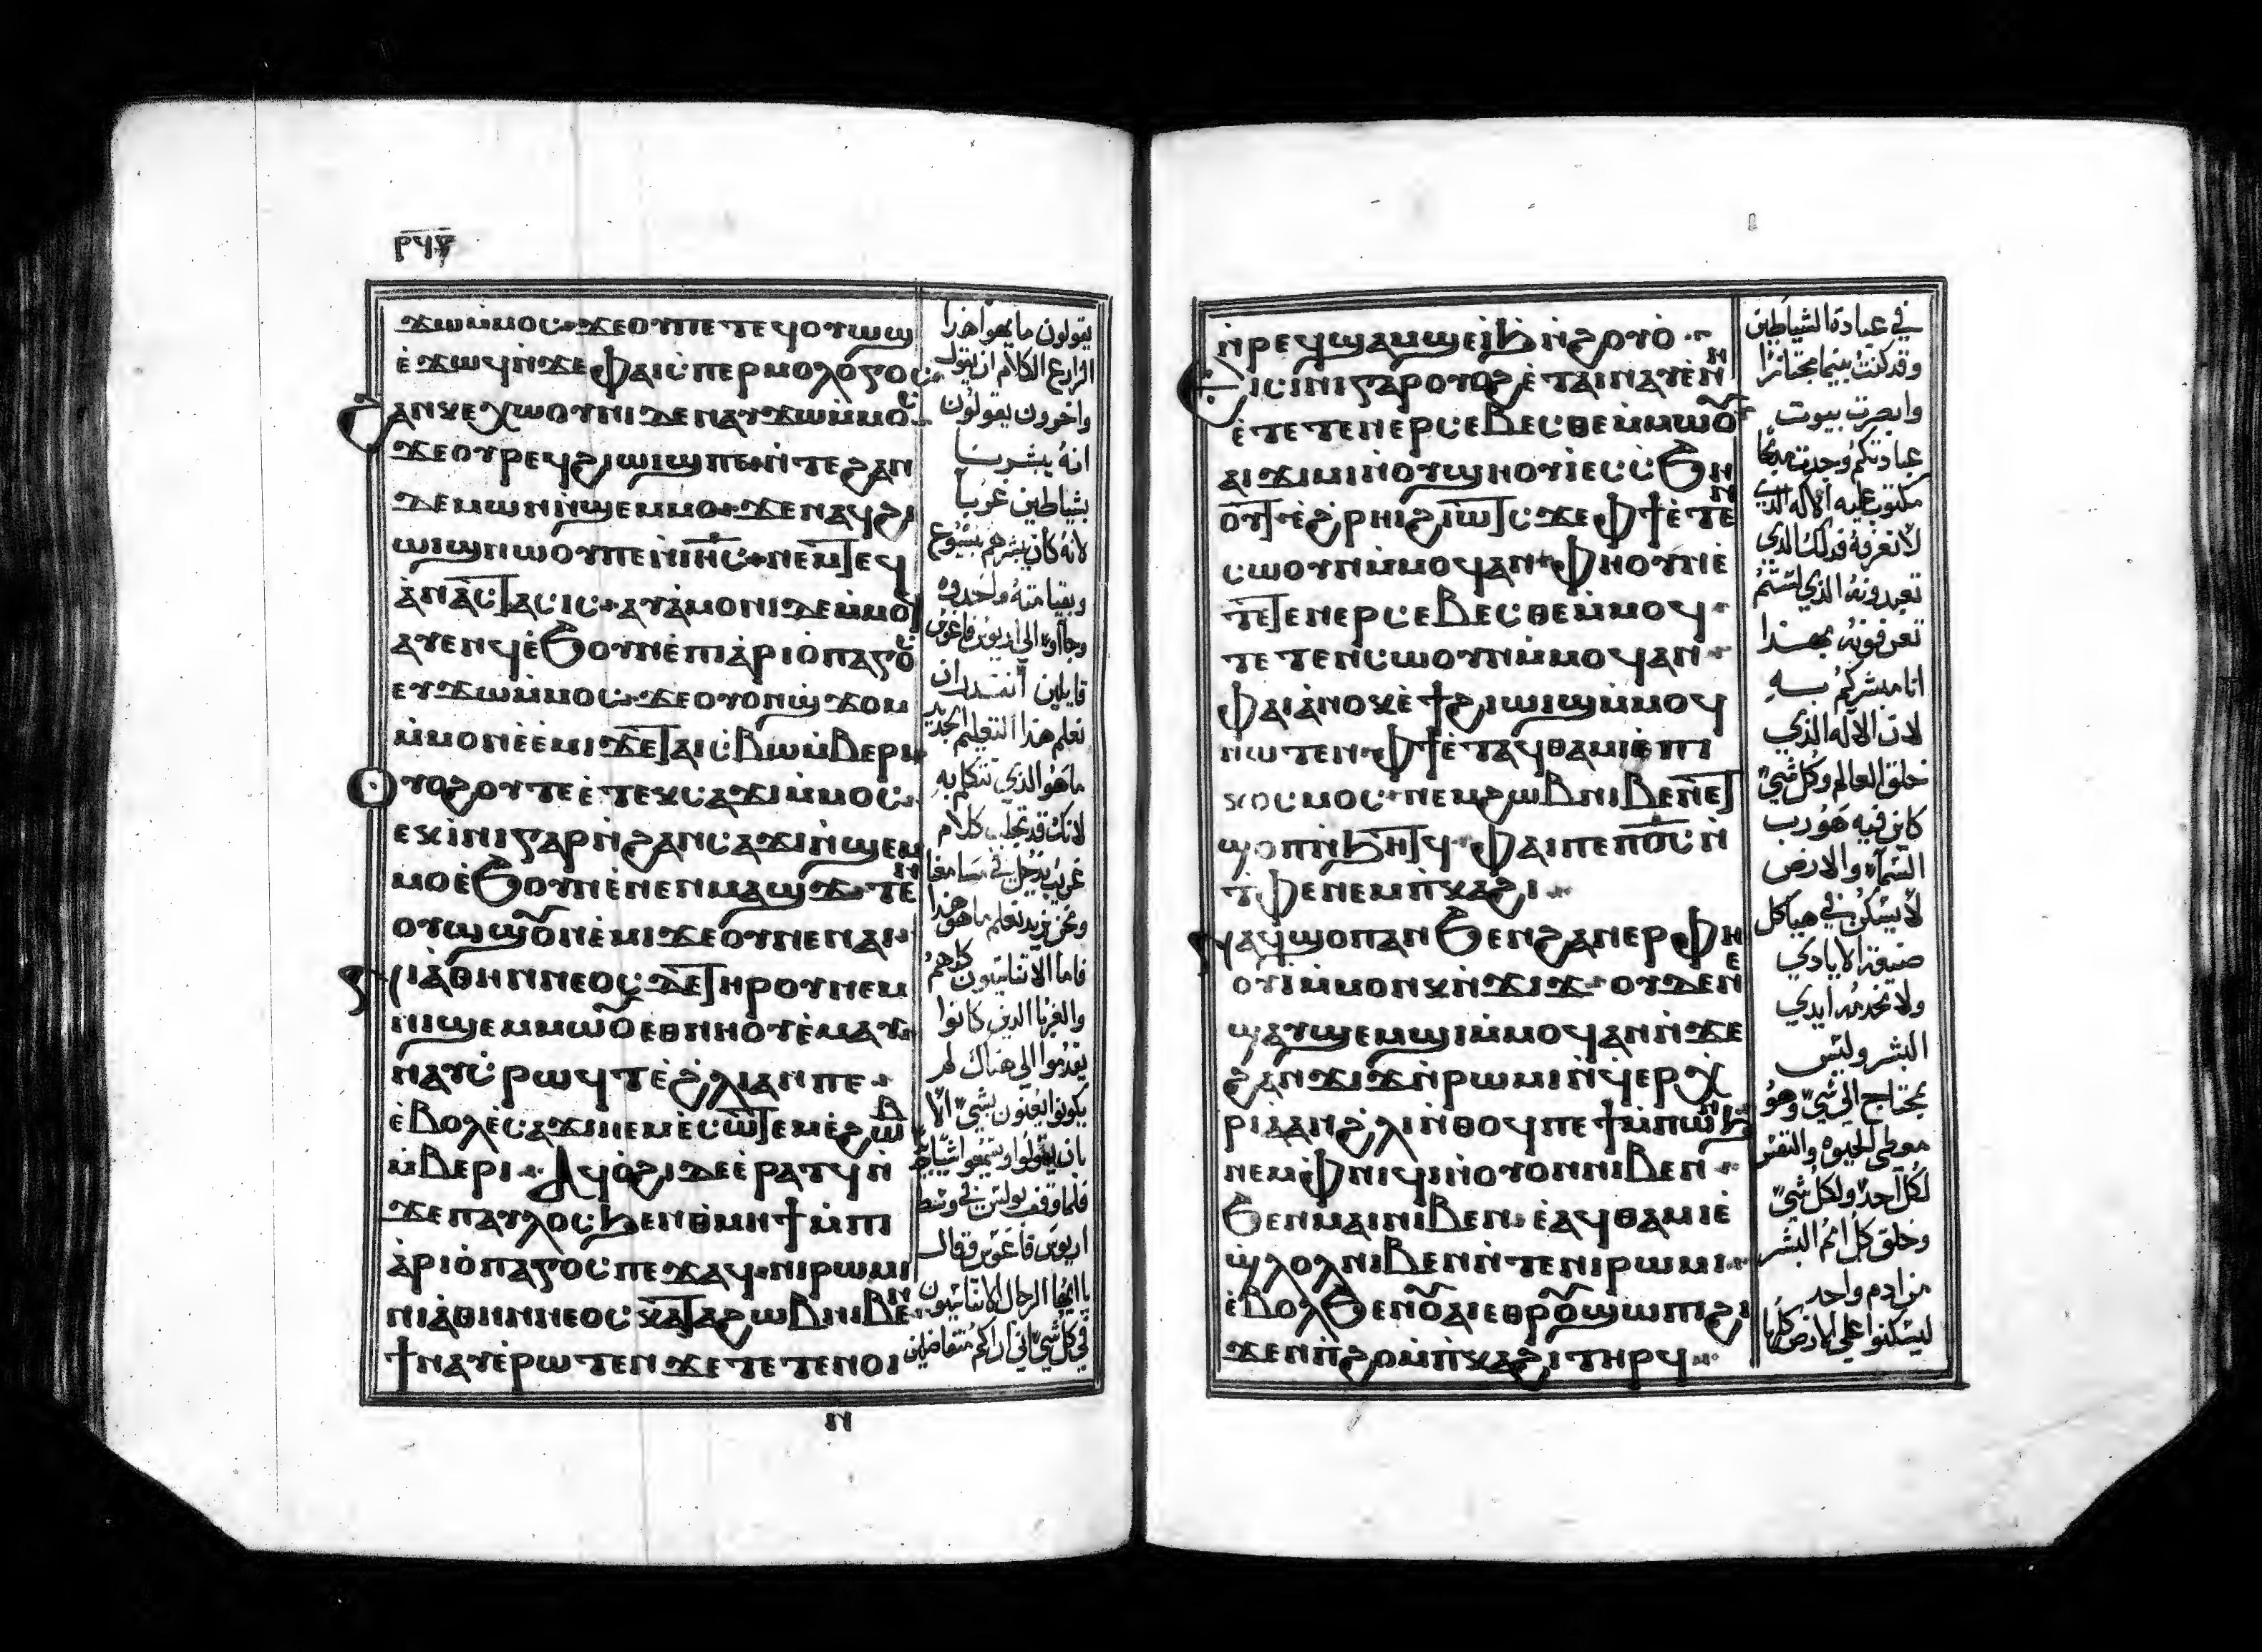 ⲣϥⲋ
ϫⲱⲙ̀ⲙⲟⲥ ϫⲉⲟⲩⲡⲉⲧⲉϥⲟⲩⲱϣ
ⲉ̀ϫⲱϥⲛ̀ϫⲉⲫⲁⲓⲥ̀ⲡⲉⲣⲙⲟⲗⲟⲅⲟⲥ
ϩⲁⲛⲕⲉⲭⲱⲟⲩⲛⲓ ⲇⲉⲛⲁⲩϫⲱⲙ̀ⲙⲟⲥ
ϫⲉⲟⲩⲣⲉϥϩⲓⲱⲓϣⲡⲉⲛ̀ⲧⲉϩⲁⲛ
ⲇⲉⲙⲱⲛⲛ̀ϣⲉⲙⲙⲟ ϫⲉⲛⲁϥϩⲓ
ⲱⲓϣⲛⲱⲟⲩⲡⲉⲛ̀ⲓⲏⲥ ⲛⲉⲙⲧⲉϥ
ⲁ̀ⲛⲁⲥⲧⲁⲥⲓⲥ ⲁⲩⲁ̀ⲙⲟⲛⲓⲇⲉⲙ̀ⲙⲟϥ
ⲁⲩⲉⲛϥⲉ̀ϧⲟⲩⲛⲉ̀ⲡⲓⲁ̀ⲣⲓⲟ̀ⲡⲁⲅⲟⲥ
ⲉⲩϫⲱⲙ̀ⲙⲟⲥ ϫⲉⲟⲩⲟⲛϣϫⲟⲙ
ⲙ̀ⲙⲟⲛⲉ̀ⲉ̀ⲙⲓ ϫⲉⲧⲁⲓⲥ̀ⲃⲱⲙ̀ⲃⲉⲣⲓ
ⲟⲩⲟϩⲟⲩⲧⲉⲉ̀ⲧⲉⲕⲥⲁϫⲓⲙ̀ⲙⲟⲥ
ⲉⲕⲓ̀ⲛⲓⲅⲁⲣⲛ̀ϩⲁⲛⲥⲁϫⲓⲛ̀ϣⲉⲙ
ⲙⲟⲉ̀ϧⲟⲩⲛⲉ̀ⲛⲉⲛⲙⲁϣϫ ⲧⲉⲛ
ⲟⲩⲱϣⲟⲩⲛⲉ̀ⲙⲓϫⲉⲟⲩⲛⲉⲛⲁⲓ
ⲛⲓⲁ̀ⲑⲏⲛⲛⲉⲟⲥ ⲇⲉⲧⲏⲣⲟⲩⲛⲉⲙ
ⲛⲓϣⲉⲙⲙⲱⲟⲩⲉⲑⲛⲏⲟⲩⲉ̀ⲙⲁⲩ
ⲛⲁⲩⲥ̀ⲣⲱϥⲧⲉ̀ϩ̀ⲗⲓⲁⲛⲡⲉ
ⲉ̀ⲃⲟⲗⲉ̀ⲥⲁϫⲓⲛⲉⲙⲉ̀ⲥⲱⲧⲉⲙⲉ̀ϩⲱⲃ
ⲙ̀ⲃⲉⲣⲓ ⲁϥⲟ̀ϩⲓⲇⲉⲉ̀ⲣⲁⲧϥⲛ̀
ϫⲉⲡⲁⲩⲗⲟⲥϧⲉⲛⲑⲙⲏϯⲙ̀ⲡⲓ
ⲁ̀ⲣⲓⲟ̀ⲡⲁⲅⲟⲥⲡⲉϫⲁϥ ⲛⲓⲣⲱⲙⲓ
ⲛⲓⲁ̀ⲑⲏⲛⲛⲉⲟⲥ ⲕⲁⲧⲁϩⲱⲃⲛⲓⲃⲉⲛ
ϯⲛⲁⲩⲉ̀ⲣⲱⲧⲉⲛ ϫⲉⲧⲉⲧⲉⲛⲟⲓ
ⲛ
يقولون ما يهوا هذا
الزارع الكلام ان يقول
واخرون يقولون
انه يبشرنا
بشياطين غربا
لانه كان يبشرهم بيسوع
وبقيامته واخدوه
وجاوا الى اريوس فاغوس
قايلين انقدر ان
نعلم هذا التعليم الجديد
ما هو الذي تتكلم به
لانك قد تجلب كلام
غريب يدخل في مسامعنا
ونحن نريد نعلم ما هو هذا
فاما الاتناسيون كلهم
والغربا الدين كانوا
يقدموا الى هناك لم
يكونوا يعنون بشي الا
فلما وقف بولس في وسط
اريوس فاغوس فقال
يا ايها الرجال الاتناسيون
في كل شي اني اراكم متفاضلين
ⲛ̀ⲣⲉϥϣⲁⲙϣⲉⲓϧⲛ̀ϩⲟⲩⲟ̀
ⲉⲓⲥⲓ̀ⲛⲓⲅⲁⲣⲟⲩⲟϩⲉ̀ⲧⲁⲓⲛⲁⲩⲉ̀ⲛⲏ
ⲉ̀ⲧⲉⲧⲉⲛⲉⲣⲥⲉⲃⲉⲥⲑⲉⲙ̀ⲙⲱⲟⲩ
ⲁⲓϫⲓⲙⲓⲛ̀ⲟⲩϣⲏⲟⲩⲓ̀ⲉⲥⲥϧⲏ
ⲟⲩⲧ ⲉ̀ϩ̀ⲣⲏⲓϩⲓⲱⲧⲥ ϫⲉⲫϯⲉ̀ⲧⲉⲛ
ⲥⲱⲟⲩⲛⲙ̀ⲙⲟϥⲁⲛ ⲫⲏⲟⲩⲛⲉ̀
ⲧⲉⲧⲉⲛⲉⲣⲥⲉⲃⲉⲥⲑⲉⲙ̀ⲙⲟϥ
ⲧⲉⲧⲉⲛⲥⲱⲟⲩⲛⲙ̀ⲙⲟϥⲁⲛ
ⲫⲁⲓⲁ̀ⲛⲟⲕⲉ̀ϯϩⲓⲱⲓϣⲙ̀ⲙⲟϥ
ⲛⲱⲧⲉⲛ ⲫϯⲉ̀ⲧⲁϥⲑⲁⲙⲓⲉ̀ⲡⲓ
ⲕⲟⲥⲙⲟⲥ ⲛⲉⲙϩⲱⲃⲛⲓⲃⲉⲛⲉⲧ
ϣⲟⲡⲛ̀ϧⲏⲧϥ ⲫⲁⲓⲡⲉⲡⲟⲥⲛ̀
ⲧ̀ⲫⲉⲛⲉⲙⲡ̀ⲕⲁϩⲓ
ⲛⲁϥϣⲟⲡⲁⲛϧⲉⲛϩⲁⲛⲉⲣⲫⲏ
ⲟⲩⲓ̀ⲙ̀ⲙⲟⲛⲕⲛ̀ϫⲓϫ ⲟⲩⲇⲉⲛⲉ
ϣⲁⲩϣⲉⲙϣⲓⲙ̀ⲙⲟϥⲁⲛⲛ̀ϫⲉ
ϩⲁⲛϫⲓϫⲛ̀ⲣⲱⲙⲓⲛ̀ϥⲉⲣⲭ̀
ⲣⲓⲁⲁⲛϩ̀ⲗⲓⲛ̀ⲑⲟϥⲡⲉϯⲙ̀ⲡⲱⲛϧ
ⲛⲉⲙⲫⲛⲓϥⲓⲛ̀ⲟⲩⲟⲛⲛⲓⲃⲉⲛ
ϧⲉⲛⲙⲁⲓⲛⲓⲃⲉⲛ ⲉ̀ⲁϥⲑⲁⲙⲓⲉ̀
ϣ̀ⲗⲟⲗⲛⲓⲃⲉⲛⲛ̀ⲧⲉⲛⲓⲣⲱⲙⲓ
ⲉ̀ⲃⲟⲗϧⲉⲛⲟⲩⲁⲓⲉⲑⲣⲟⲩϣⲱⲡⲓϩⲓ
ϫⲉⲛⲡ̀ϩⲟⲙ̀ⲡ̀ⲕⲁϩⲓⲧⲏⲣϥ
في عبادة الشياطين
وقد كنت بينما مجتازا
وابصرت بيوت
عبادتكم وجدت مذبحا
مكتوب عليه الاله الذي
لا نعرفه فدلك الدي
تعبدونه الذي لستم
تعرفونه بهدا
انا مبشركم به
لان الاله الذي
خلق العالم وكل شي
كاين فيه هو رب
السماء والارض
لا يسكن في هياكل
صنيعة الايادي
ولا تخدمه ايدي
البشر وليس
يحتاج الى شي وهو
معطي الحيوه والنفس
لكل احد ولكل شي
وخلق كل امم البشر
من ادم واحد
ليسكنوا على الارض كلها